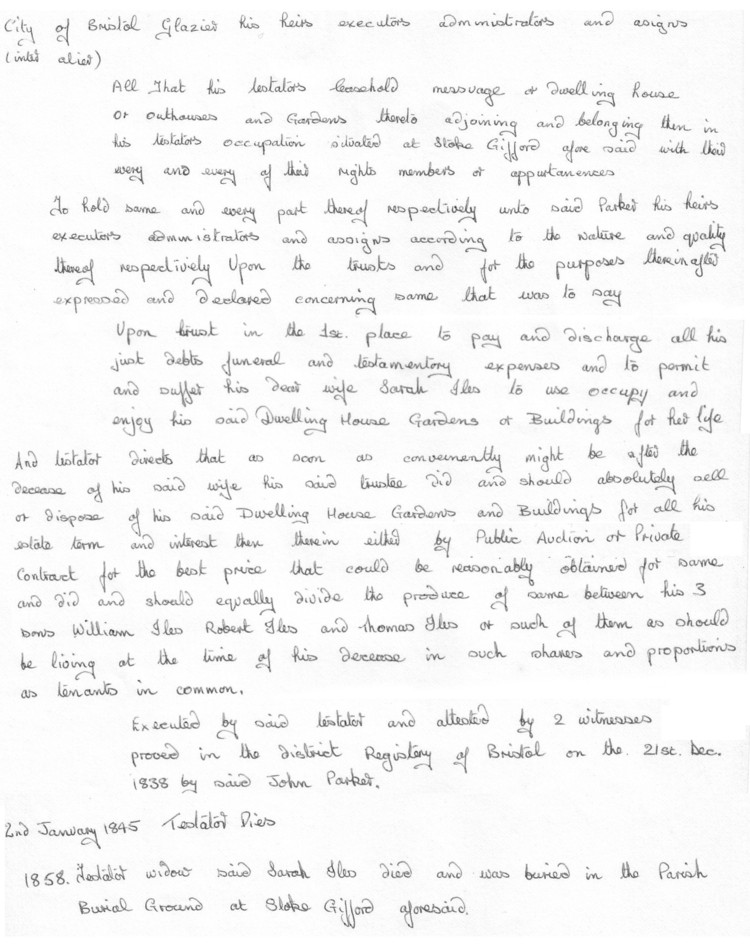 City of Bristol Glazier his heirs executors administrators and asigns
(inter alier)
All That his testators leasehold messuage or dwelling house
or outhouses and Gardens thereto adjoining and belonging then in
his testators occupation situated at Stoke Gifford afore said with their
every and every of their rights members or appurtanences
To hold same and every part thereof respectively unto said Parker his heirs
executors administrators and assigns according to the nature and quality
thereof respectively Upon the trusts and for the purposes thereinafter
expressed and declared concerning same that was to say
Upon trust in the 1st. place to pay and discharge all his
just debts funeral and testamentory expenses and to permit
and suffer his dear wife Sarah Iles to use occupy and
enjoy his said Dwelling House Gardens or Buildings for her life
And testator directs that as soon as conveniently might be after the
decease of his said wife his said trustee did and should absolutely sell
or dispose of his said Dwelling House Gardens and Buildings for all his
estate term and interest then therein either by Public Auction or Private
Contract for the best price that could be reasonably obtained for same
and did and should equally divide the produce of same between his 3
sons William Iles Robert Iles and Thomas Iles or such of them as should
be living at the time of his decease in such shares and proportions
as tenants in common.
Executed by said testator and attested by 2 witnesses
proved in the district Registery of Bristol on the 21st. Dec.
1838 by said John Parker.
2nd January 1845 Testator Dies
1858. Testator widow said Sarah Iles died and was buried in the Parish
Burial Ground at Stoke Gifford aforesaid.